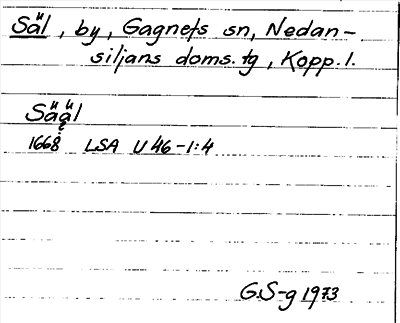 Säl, by, Gagnefs sn, Nedan-
siljans doms.tg, Kopp.l.
Sääl
1668 LSA U46-1:4
G.S-g 1973